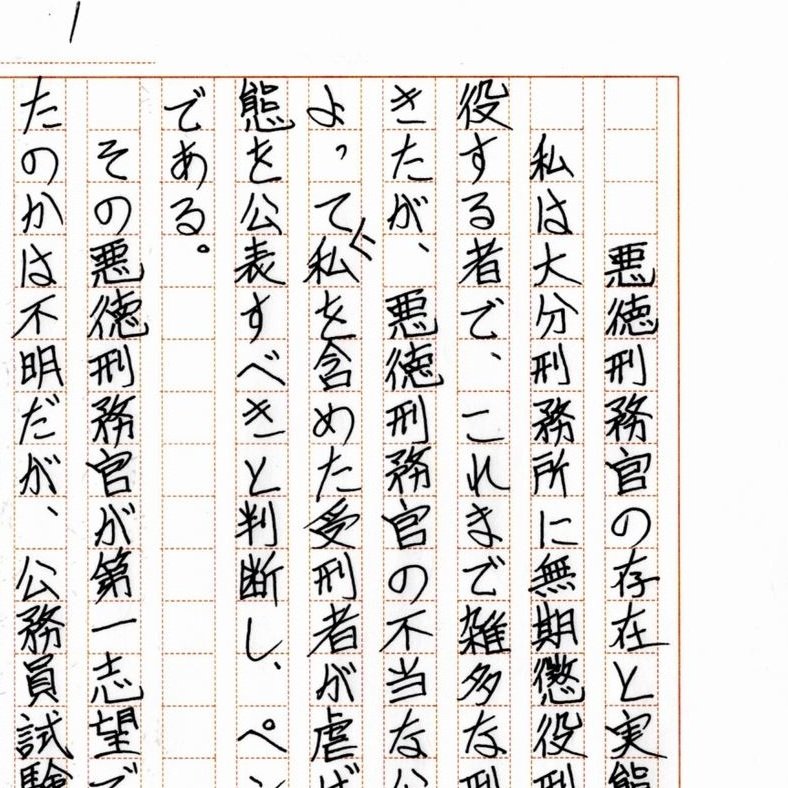 1
悪徳刑務官の存在と実態
私は大分刑務所に無期懲役刑
役する者で、これまで雑多な刑
きたが、悪徳刑務官の不当な公
よって私を含めた受刑者が虐げ
態を公表すべきと判断し、ペン
である。
その悪徳刑務官が第一志望で
たのかは不明だが、公務員試験